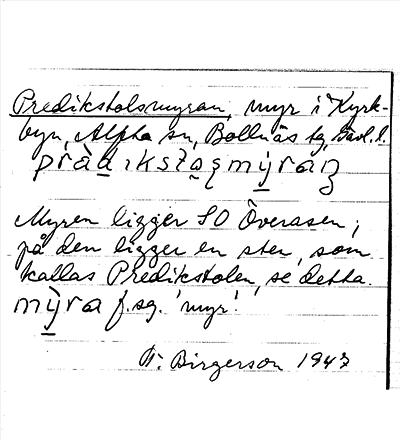 Predikstolsmyran, myr i Kyrk-
byn, Alfta sn, Bollnäs tg, Gävl. l.
prä̀dıkstɑ̥ꞩmy̾raɳ
Myren ligger SO Överåsen;
på den ligger en sten, som
kallas Predikstolen, se detta.
mỳra f. sg. 'myr'.
Birgerson 1947